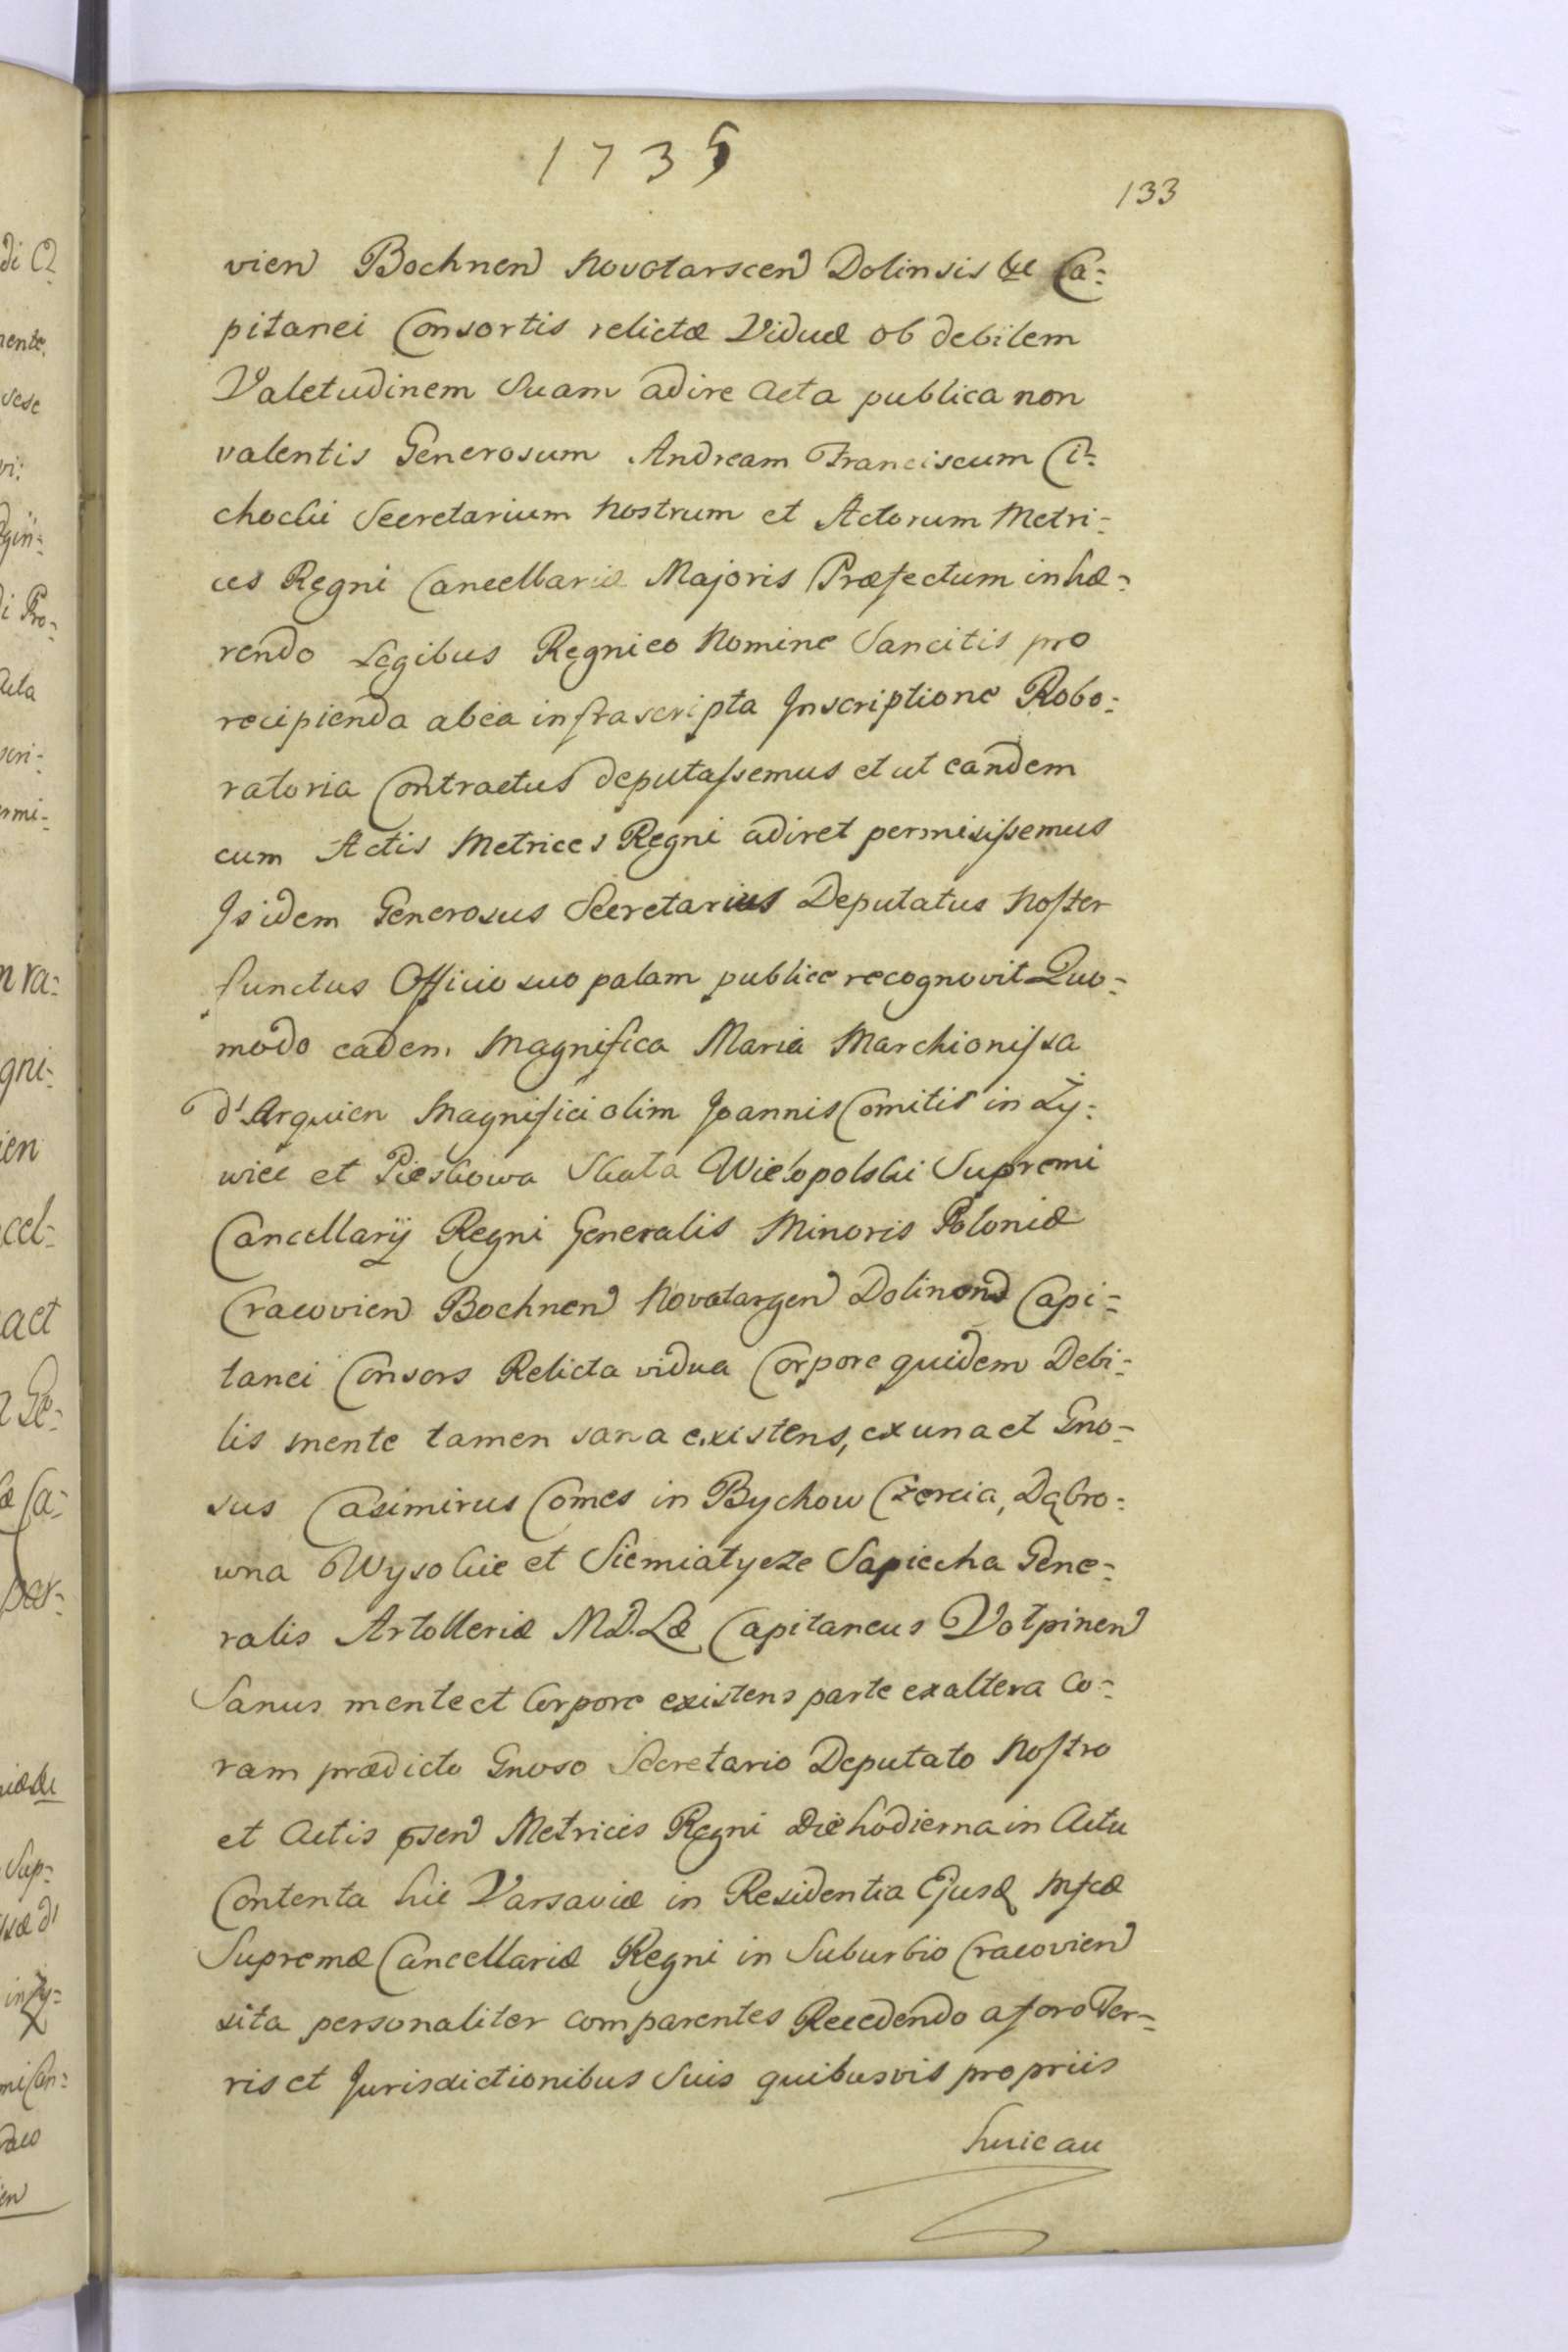 1735
133
vien Bochnen Novotarscen Dolinsis &c Ca=
pitanei Consortis relictæ Viduæ ob debilem
Valetudinem Suam adire Acta publica non
valentis Generosum Andream Franciscum Ci=
chocki Secretarium Nostrum et Actorum Metri=
ces Regni Cancellariæ Majoris Præfectum inhæ=
rendo Legibus Regni eo Nomine Sancitis pro
recipienda ab ea infrascripta Inscriptione Robo=
ratoria Contractus deputassemus et ut eandem
cum Actis Metrices Regni adiret permisissemus
Is idem Generosus Secretarius Deputatus Noster
functus Officio suo palam publice recognovit Quo=
modo eadem Magnifica Maria Marchionissa
d'Arquien Magnifici olim Joannis Comitis in Ży=
wiec et Pieskowa Skała Wielopolski Supremi
Cancellarij Regni Generalis Minoris Poloniæ
Cracovien Bochnen Novotargen Dolinen Capi=
tanei Consors Relicta vidua Corpore quidem Debi=
lis mente tamen sana existens, ex una et Gno=
sus Casimirus Comes in Bychow Czercia, Dąbro=
wna Wysokie et Siemiatycze Sapiecha Gene=
ralis Artolleriæ M.D.Læ Capitaneus Volpinen
Sanus mente et Corpore existens parte ex altera Co=
ram prædicto Gnoso Secretario Deputato Nostro
et Actis psen Metrices Regni Die hodierna in Actu
Contenta hic Varsaviæ in Residentia Ejusd Mfcæ
Supremæ Cancellariæ Regni in Suburbio Cracovien
sita personaliter comparentes Recedendo a foro Ter=
ris et Jurisdictionibus Suis quibusvis propriis
huic au